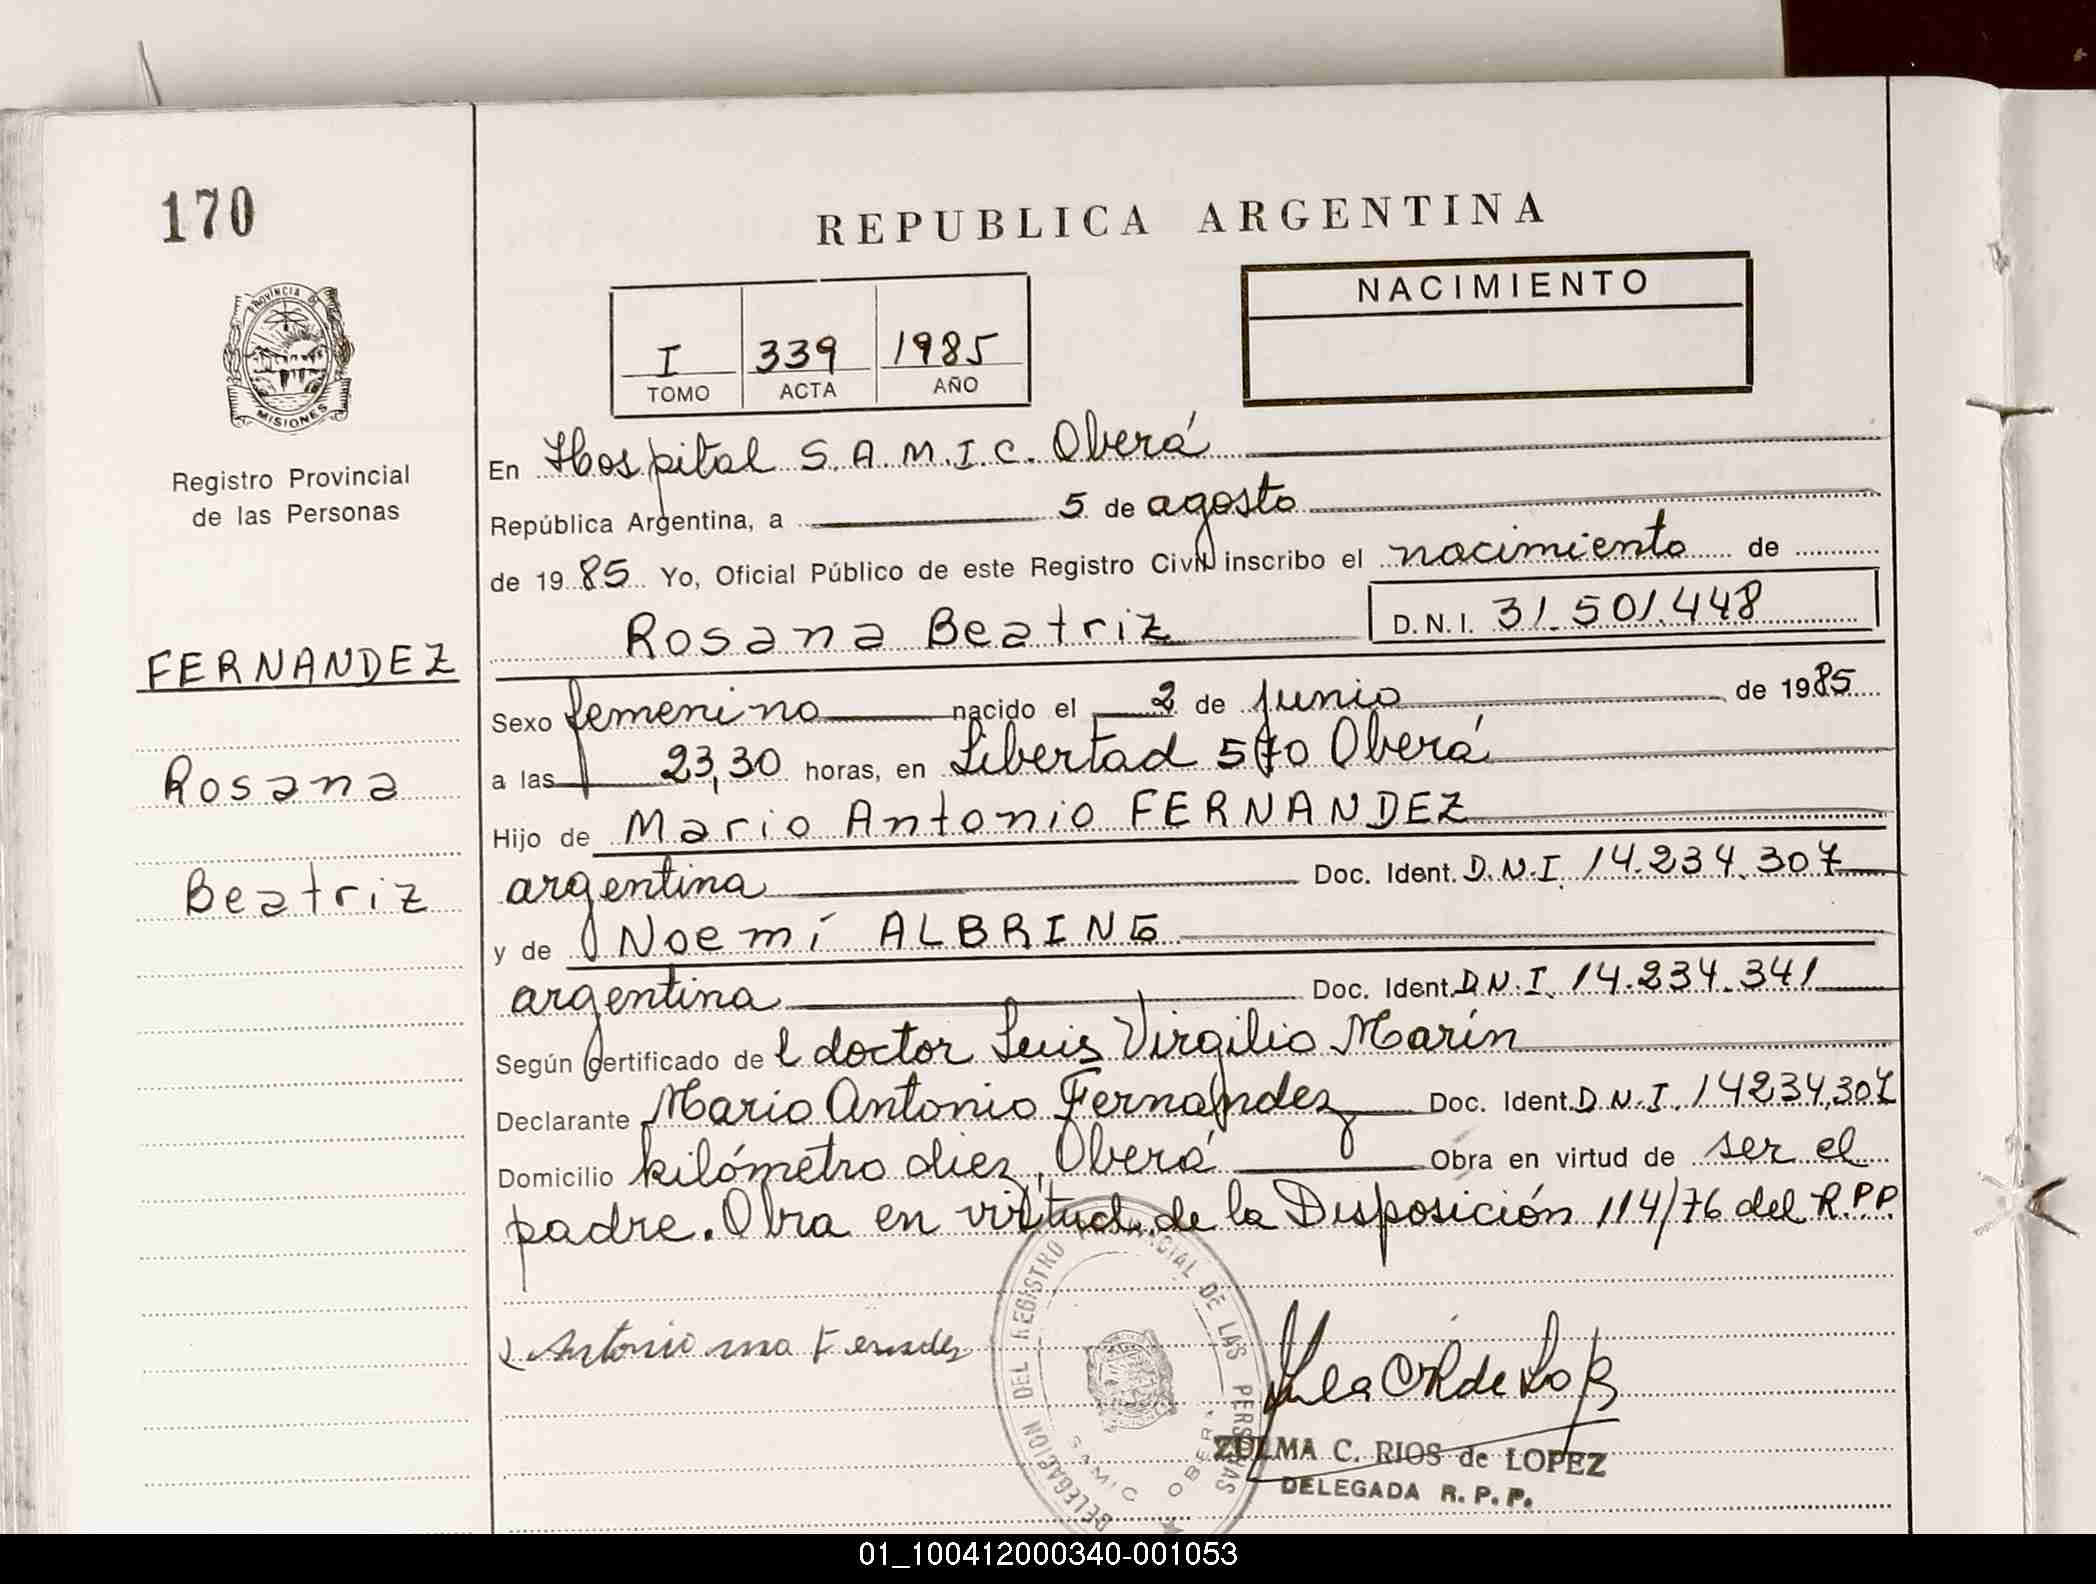 170
REPUBLICA ARGENTINA
PROVINCIA DE
MISIONES
Registro Provincial
de las Personas
I 339 1985
TOMO ACTA AÑO
NACIMIENTO
En Hospital S.A.M.I.C. Oberá
República Argentina, a 5 de agosto
de 1985 Yo, Oficial Público de este Registro Civil inscribo el nacimiento de
Rosana Beatriz D.N.I. 31.501.448
FERNANDEZ
Rosana
Beatriz
Sexo femenino nacido el 2 de junio de 1985
a las 23,30 horas, en Libertad 570 Oberá
Hijo de Mario Antonio FERNANDEZ
argentina Doc. Ident. D.N.I. 14.234.307
y de Noemí ALBRING
argentina Doc. Ident. D.N.I. 14.234.341
Según certificado de l doctor Luis Virgilio Marín
Declarante Mario Antonio Fernandez Doc. Ident. D.N.I. 14234,307
Domicilio kilómetro diez, Oberá Obra en virtud de ser el
padre. Obra en virtud de la Disposición 114/76 del R.P.P.
Antonio
DELEGACION DEL REGISTRO PROVINCIAL DE LAS PERSONAS
SAMIC OBERA
ZULMA C. RIOS de LOPEZ
DELEGADA R. P. P.
01_100412000340-001053